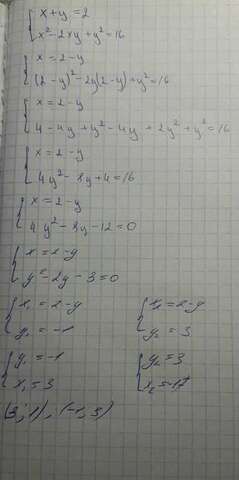 { x + y = 2
{ x² - 2xy + y² = 16
{ x = 2 - y
{ (2 - y)² - 2y(2 - y) + y² = 16
{ x = 2 - y
{ 4 - 4y + y² - 4y + 2y² + y² = 16
{ x = 2 - y
{ 4y² - 8y + 4 = 16
{ x = 2 - y
{ 4y² - 8y - 12 = 0
{ x = 2 - y
{ y² - 2y - 3 = 0
{ x₁ = 2 - y { x₂ = 2 - y
{ y₁ = -1 { y₂ = 3
{ y₁ = -1 { y₂ = 3
{ x₁ = 3 { x₂ = -1
(3; 1), (-1, 3)